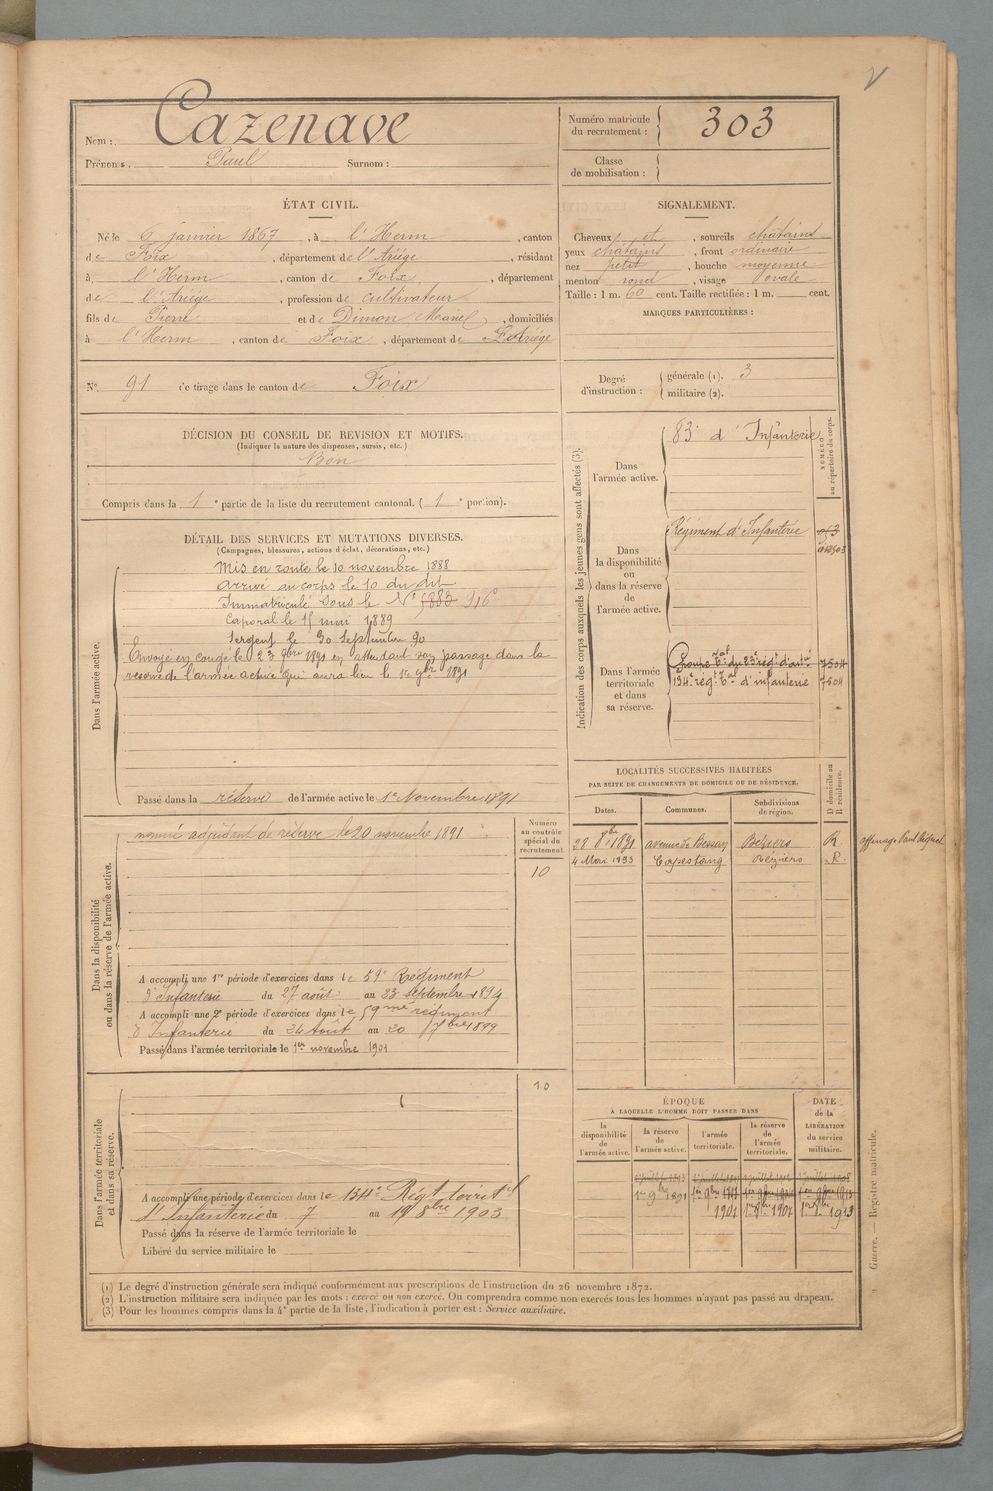 V
Nom : Cazenave
Prénoms : Paul Surnom :
Numéro matricule du recrutement : 303
Classe de mobilisation :
ÉTAT CIVIL.
Né le 6 janvier 1867, à l'Herm, canton
de Foix, département de l'Ariège, résidant
à l'Herm, canton de Foix, département
de l'Ariège, profession de cultivateur
fils de Pierre et de Dimon Marie, domiciliés
à l'Herm, canton de Foix, département de L'Ariège
SIGNALEMENT.
Cheveux et, sourcils châtains
yeux châtains, front ordinaire
nez petit, bouche moyenne
menton rond, visage ovale
Taille : 1 m. 60 cent. Taille rectifiée : 1 m. cent.
MARQUES PARTICULIÈRES :
N° 91 de tirage dans le canton de Foix
Degré d'instruction : générale (1). 3
militaire (2).
DÉCISION DU CONSEIL DE REVISION ET MOTIFS.
(Indiquer la nature des dispenses, sursis, etc.)
Bon
Compris dans la 1e partie de la liste du recrutement cantonal. (1e portion).
DÉTAIL DES SERVICES ET MUTATIONS DIVERSES.
(Campagnes, blessures, actions d'éclat, décorations, etc.)
Dans l'armée active.
Mis en route le 10 novembre 1888
Arrivé au corps le 10 du dit
Immatriculé sous le N° 916
Caporal le 15 mai 1889
Sergent le 30 Septembre 90
Envoyé en congé le 23 7bre 1891 en attendant son passage dans la
réserve de l'armée active qui aura lieu le 1er 9bre 1891
Passé dans la réserve de l'armée active le 1er Novembre 1891
Indication des corps auxquels les jeunes gens sont affectés (3).
NUMÉRO au répertoire du corps.
Dans l'armée active.
83e d'Infanterie
Dans la disponibilité ou dans la réserve de l'armée active.
Régiment d'Infanterie
Dans l'armée territoriale et dans sa réserve.
Groupe Tal du 23e régt d'artie 7504
134e régt Tal d'infanterie 7504
LOCALITÉS SUCCESSIVES HABITÉES
PAR SUITE DE CHANGEMENTS DE DOMICILE OU DE RÉSIDENCE.
Dates. Communes. Subdivisions de région. D domicile ou R résidence.
28 8bre 1891 avenue de Bessan Béziers R
4 Mai 1893 Capestang Béziers R.
Dans la disponibilité ou dans la réserve de l'armée active.
Numéro au contrôle spécial du recrutement
nommé adjudant de réserve le 20 novembre 1891
10
A accompli une 1re période d'exercices dans le 59e Régiment
d'Infanterie du 27 août au 23 septembre 1894
A accompli une 2e période d'exercices dans le 59me régiment
d'Infanterie du 24 Août au 20 7bre 1899
Passé dans l'armée territoriale le 1er novembre 1901
Dans l'armée territoriale et dans sa réserve.
10
A accompli une période d'exercices dans le 134e Régt territal
d'Infanterie du 7 au 19 8bre 1903
Passé dans la réserve de l'armée territoriale le
Libéré du service militaire le
ÉPOQUE
À LAQUELLE L'HOMME DOIT PASSER DANS
la disponibilité de l'armée active.
la réserve de l'armée active.
l'armée territoriale.
la réserve de l'armée territoriale.
DATE de la LIBÉRATION du service militaire.
1er 9bre 1891
1901
1er 9bre 1907
1913
Guerre. — Registre matricule.
(1) Le degré d'instruction générale sera indiqué conformément aux prescriptions de l'instruction du 26 novembre 1872.
(2) L'instruction militaire sera indiquée par les mots : exercé ou non exercé. On comprendra comme non exercés tous les hommes n'ayant pas passé au drapeau.
(3) Pour les hommes compris dans la 4e partie de la liste, l'indication à porter est : Service auxiliaire.